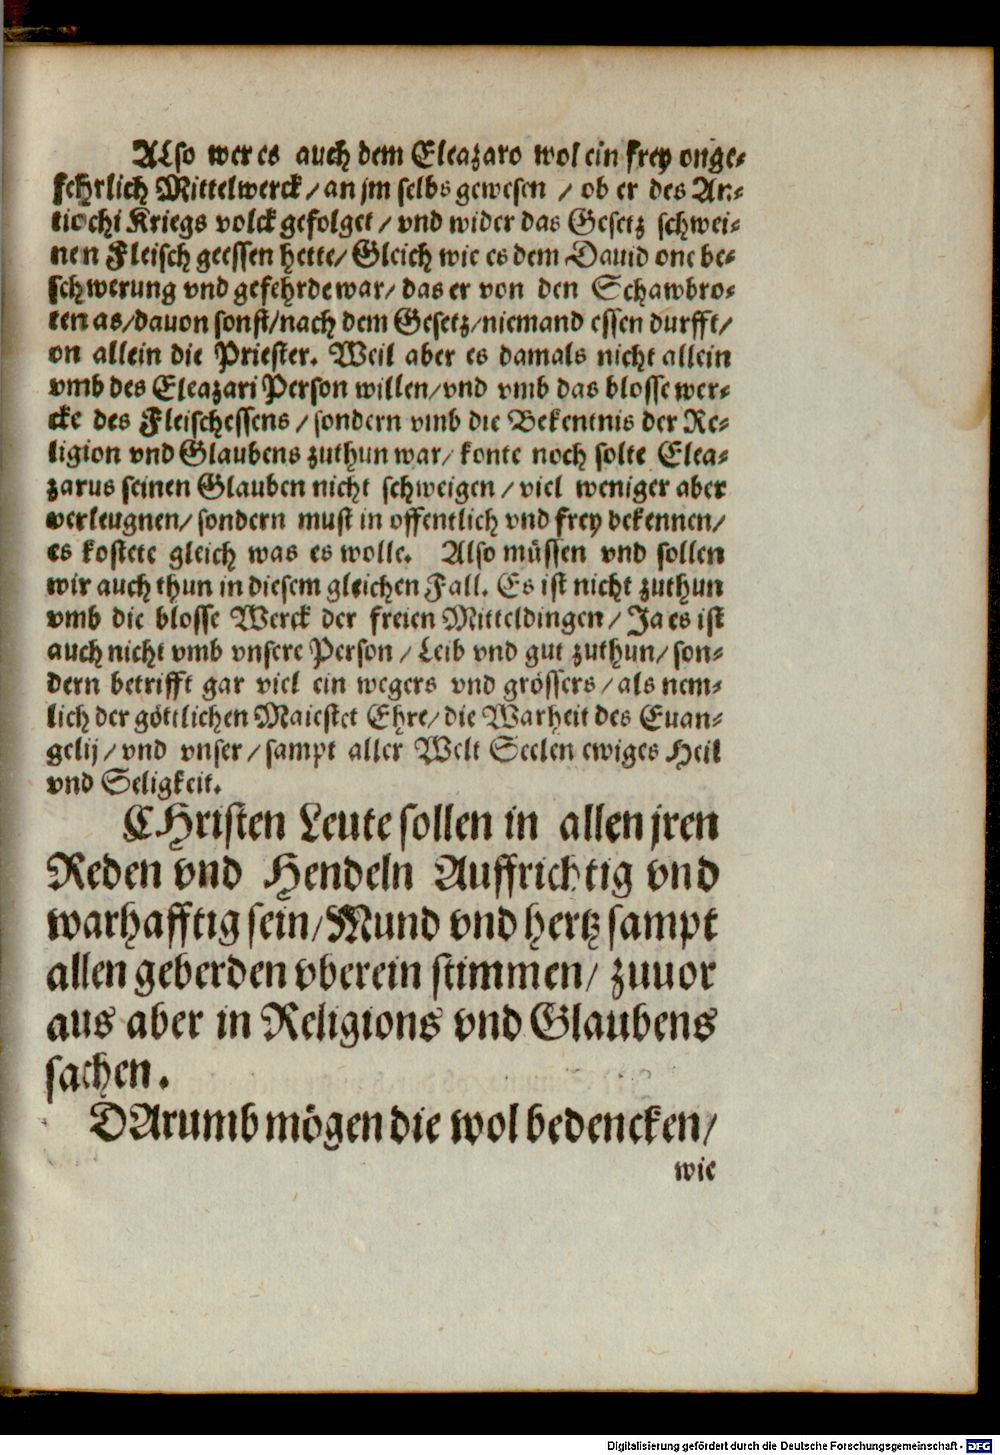 ALso wer es auch dem Eleazaro wol ein frey onge-
fehrlich Mittelwerck / an jm selbs gewesen / ob er des An-
tiochi Kriegs volck gefolget / vnd wider das Gesetz schwei-
nen Fleisch geessen hette / Gleich wie es dem Dauid one be-
schwerung vnd gefehrde war / das er von den Schawbro-
ten as / dauon sonst / nach dem Gesetz / niemand essen durfft /
on allein die Priester. Weil aber es damals nicht allein
vmb des Eleazari Person willen / vnd vmb das blosse wer-
cke des Fleischessens / sondern vmb die Bekentnis der Re-
ligion vnd Glaubens zuthun war / konte noch solte Elea-
zarus seinen Glauben nicht schweigen / viel weniger aber
verleugnen / sondern must in offentlich vnd frey bekennen /
es kostete gleich was es wolle. Also müssen vnd sollen
wir auch thun in diesem gleichen Fall. Es ist nicht zuthun
vmb die blosse Werck der freien Mitteldingen / Ja es ist
auch nicht vmb vnsere Person / Leib vnd gut zuthun / son-
dern betrifft gar viel ein wegers vnd grössers / als nem-
lich der göttlichen Maiestet Ehre / die Warheit des Euan-
gelij / vnd vnser / sampt aller Welt Seelen ewiges Heil
vnd Seligkeit.
CHristen Leute sollen in allen jren
Reden vnd Hendeln Auffrichtig vnd
warhafftig sein / Mund vnd hertz sampt
allen geberden vberein stimmen / zuuor
aus aber in Religions vnd Glaubens
sachen.
DArumb mögen die wol bedencken /
wie
Digitalisierung gefördert durch die Deutsche Forschungsgemeinschaft - DFG